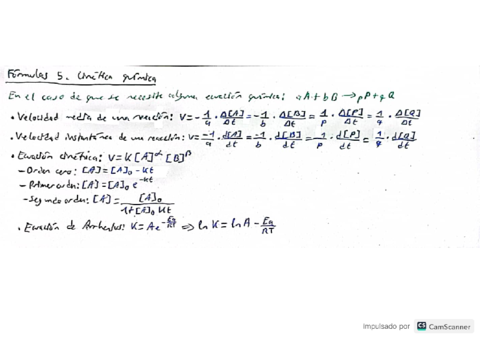 Fórmulas 5. Cinética química
En el caso de que se necesite alguna ecuación química: aA+bB → pP+qQ
• Velocidad media de una reacción: V=-1/a · Δ[A]/Δt = -1/b · Δ[B]/Δt = 1/p · Δ[P]/Δt = 1/q · Δ[Q]/Δt
• Velocidad instantánea de una reacción: V=-1/a · d[A]/dt = -1/b · d[B]/dt = 1/p · d[P]/dt = 1/q · d[Q]/dt
• Ecuación cinética: V=K[A]^α [B]^β
- Orden cero: [A]=[A]₀-Kt
- Primer orden: [A]=[A]₀ e^-Kt
- Segundo orden: [A]=[A]₀/1+[A]₀·Kt
• Ecuación de Arrhenius: K=Ae^-Ea/RT ⇒ ln K=ln A-Ea/RT
Impulsado por CS CamScanner